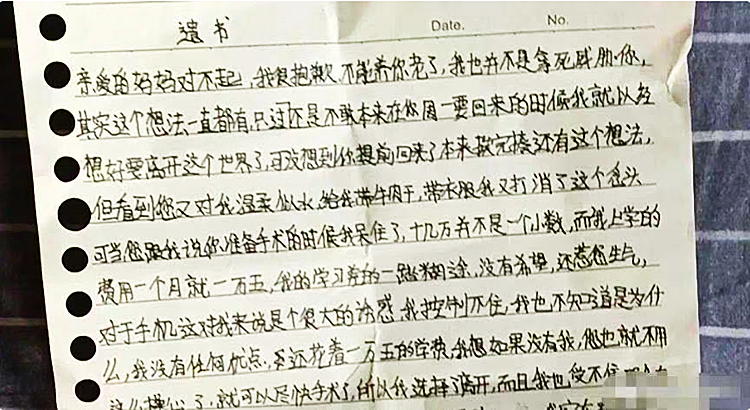 遗书
Date. No.
亲爱的妈妈对不起，我很抱歉不能养你老了，我也并不是拿死威胁你，
其实这个想法一直都有，只过还是不敢本来在你周一要回来的时候我就以经
想好要离开这个世界了，可没想到你提前回来了本来做完楱还有这个想法，
但看到您又对我温柔似水，给我带牛肉干，带衣服我又打消了这个念头
可当您跟我说你准备手术的时候我呆住了，十几万并不是一个小数，而我上学的
费用一个月就一万五，我的学习旁的一踏糊涂，没有希望，还惹您生气，
对于手机这对我来说是个很大的诱惑我控制不住，我也不知道是为什
么，我没有任何优点，还花着一万五的学费，我想如果没有我，您也就不用
这么操心了，就可以尽快手术了，所以我选择了离开，而且我也受不住